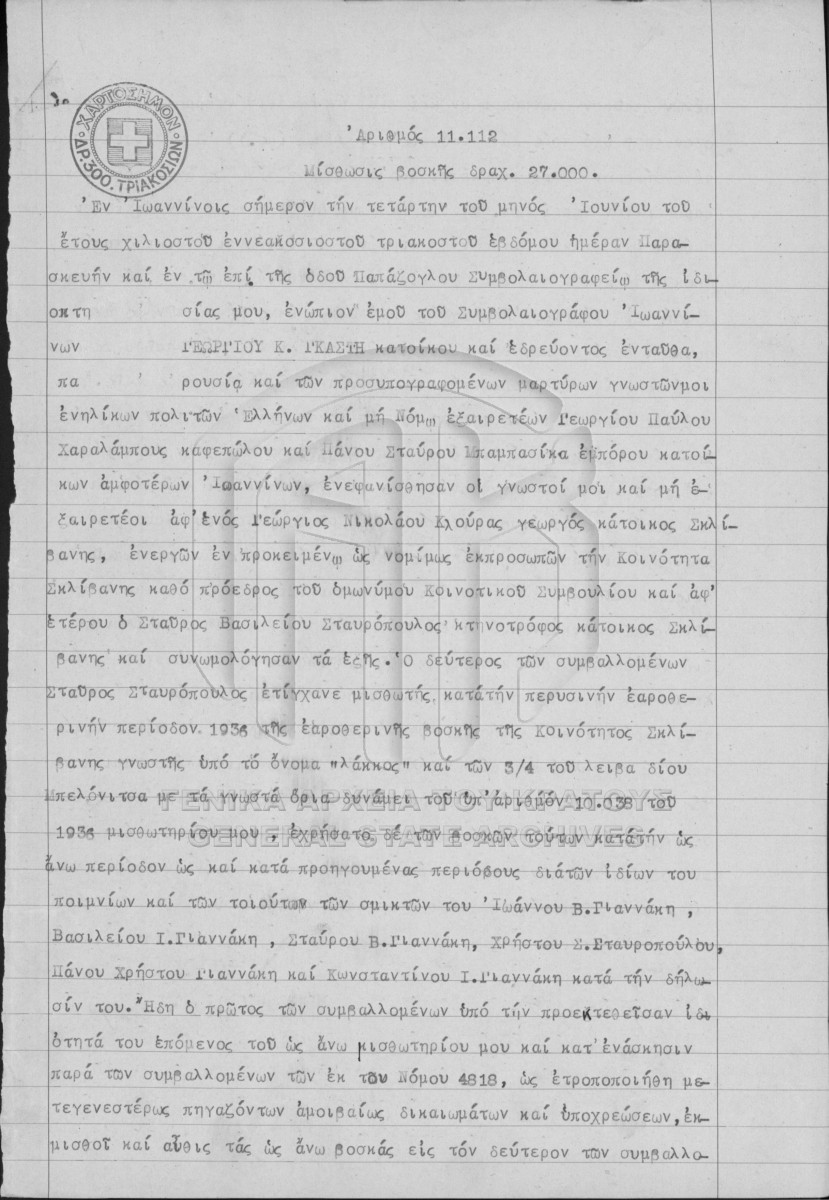 ΧΑΡΤΟΣΗΜΟΝ
ΔΡ.300. ΤΡΙΑΚΟΣΙΩΝ
Ἀριθμός 11.112
Μίσθωσις βοσκῆς δραχ. 27.000.
Ἐν Ἰωαννίνοις σήμερον τήν τετάρτην τοῦ μηνός Ἰουνίου τοῦ
ἔτους χιλιοστοῦ ἐννεακοσιοστοῦ τριακοστοῦ ἑβδόμου ἡμέραν Παρα-
σκευήν καί ἐν τῷ ἐπί τῆς ὁδοῦ Παπάζογλου Συμβολαιογραφείῳ τῆς ἰδι-
οκτη σίας μου, ἐνώπιον ἐμοῦ τοῦ Συμβολαιογράφου Ἰωαννί-
νων ΓΕΩΡΓΙΟΥ Κ. ΓΚΑΣΤΗ κατοίκου καί ἑδρεύοντος ἐνταῦθα,
πα ρουσίᾳ καί τῶν προσυπογραφομένων μαρτύρων γνωστῶνμοι
ἐνηλίκων πολιτῶν Ἑλλήνων καί μή Νόμῳ ἐξαιρετέων Γεωργίου Παύλου
Χαραλάμπους καφεπώλου καί Πάνου Σταύρου Μπαμπασίκα ἐμπόρου κατοί-
κων ἀμφοτέρων Ἰωαννίνων, ἐνεφανίσθησαν οἱ γνωστοί μοι καί μή ἐ-
ξαιρετέοι ἀφ'ἑνός Γεώργιος Νικολάου Κλούρας γεωργός κάτοικος Σκλί-
βανης, ἐνεργῶν ἐν προκειμένῳ ὡς νομίμως ἐκπροσωπῶν τήν Κοινότητα
Σκλίβανης καθό πρόεδρος τοῦ ὁμωνύμου Κοινοτικοῦ Συμβουλίου καί ἀφ'
ἑτέρου ὁ Σταῦρος Βασιλείου Σταυρόπουλος κτηνοτρόφος κάτοικος Σκλί-
βανης καί συνωμολόγησαν τά ἑξῆς. Ὁ δεύτερος τῶν συμβαλλομένων
Σταῦρος Σταυρόπουλος ἐτίγχανε μισθωτής κατάτήν περυσινήν ἐαροθε-
ρινήν περίοδον 1936 τῆς ἐαροθερινῆς βοσκῆς τῆς Κοινότητος Σκλί-
βανης γνωστῆς ὑπό τό ὄνομα "λάκκος" καί τῶν 3/4 τοῦ λειβα δίου
Μπελόνιτσα με τά γνωστά ὅρια δυνάμει τοῦ ὑπ'ἀριθμόν 10.038 τοῦ
1936 μισθωτηρίου μου , ἐχρήσατο δέ τῶν βοσκῶν τούτων κατάτήν ὡς
ἄνω περίοδον ὡς καί κατά προηγουμένας περιόδους διάτῶν ἰδίων του
ποιμνίων καί τῶν τοιούτων τῶν σμικτῶν του Ἰωάννου Β.Γιαννάκη ,
Βασιλείου Ι.Γιαννάκη , Σταύρου Β.Γιαννάκη, Χρήστου Σ.Σταυροπούλου,
Πάνου Χρήστου Γιαννάκη καί Κωνσταντίνου Ι.Γιαννάκη κατά τήν δήλω-
σίν του. Ἤδη ὁ πρῶτος τῶν συμβαλλομένων ὑπό τήν προεκτεθεῖσαν ἰδι
ότητά του ἑπόμενος τοῦ ὡς ἄνω μισθωτηρίου μου καί κατ'ἐνάσκησιν
παρά τῶν συμβαλλομένων τῶν ἐκ τοῦ Νόμου 4818, ὡς ἐτροποποιήθη με-
τεγενεστέρως πηγαζόντων ἀμοιβαίως δικαιωμάτων καί ὑποχρεώσεων,ἐκ-
μισθοῖ καί αὖθις τάς ὡς ἄνω βοσκάς εἰς τόν δεύτερον τῶν συμβαλλο-
ΓΕΝΙΚΑ ΑΡΧΕΙΑ ΤΟΥ ΚΡΑΤΟΥΣ
GENERAL STATE ARCHIVES